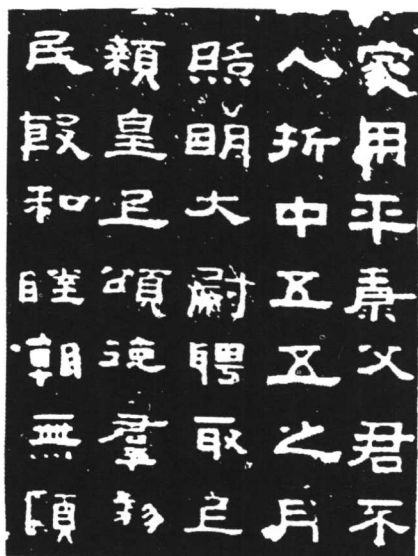 家用平康父君不
人折中五五之月
照明大尉聘取
類皇頌德羣
民殷和睦朝無